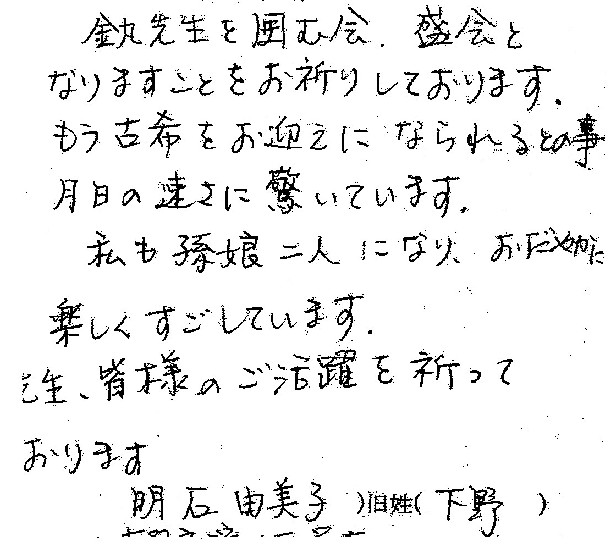 釛先生を囲む会、盛会と
なりますことをお祈りしております。
もう古希をお迎えになられるとの事
月日の速さに驚いています。
私も孫娘二人になり、おだやかに
楽しくすごしています。
先生、皆様のご活躍を祈って
おります
明石由美子)旧姓(下野)